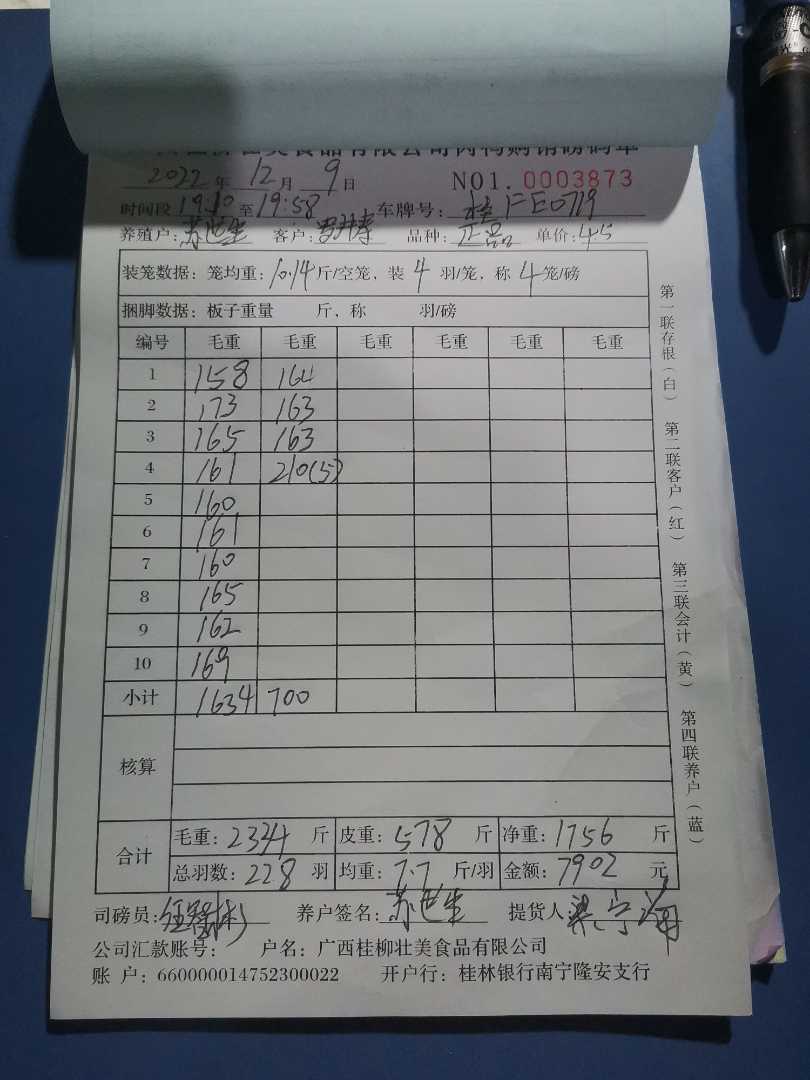 食品有限公司肉鸭购销磅码单
2022年12月9日 NO1.0003873
时间段19:10至19:58 车牌号:桂FE0719
养殖户:苏世生 客户: 品种:正品 单价:4.5
装笼数据:笼均重:10.14斤/空笼,装4羽/笼,称4笼/磅
捆脚数据:板子重量 斤,称 羽/磅
编号 毛重 毛重 毛重 毛重 毛重 毛重
1 158 164
2 173 163
3 165 163
4 161 210(5)
5 160
6 161
7 160
8 165
9 162
10 169
小计 1634 700
核算
合计 毛重:2334斤 皮重:578斤 净重:1756斤
总羽数:228羽 均重:7.7斤/羽 金额:7902元
司磅员: 养户签名:苏世生 提货人:梁宁海
公司汇款账号: 户名:广西桂柳壮美食品有限公司
账 户:660000014752300022 开户行:桂林银行南宁隆安支行
第一联存根(白) 第二联客户(红) 第三联会计(黄) 第四联养户(蓝)